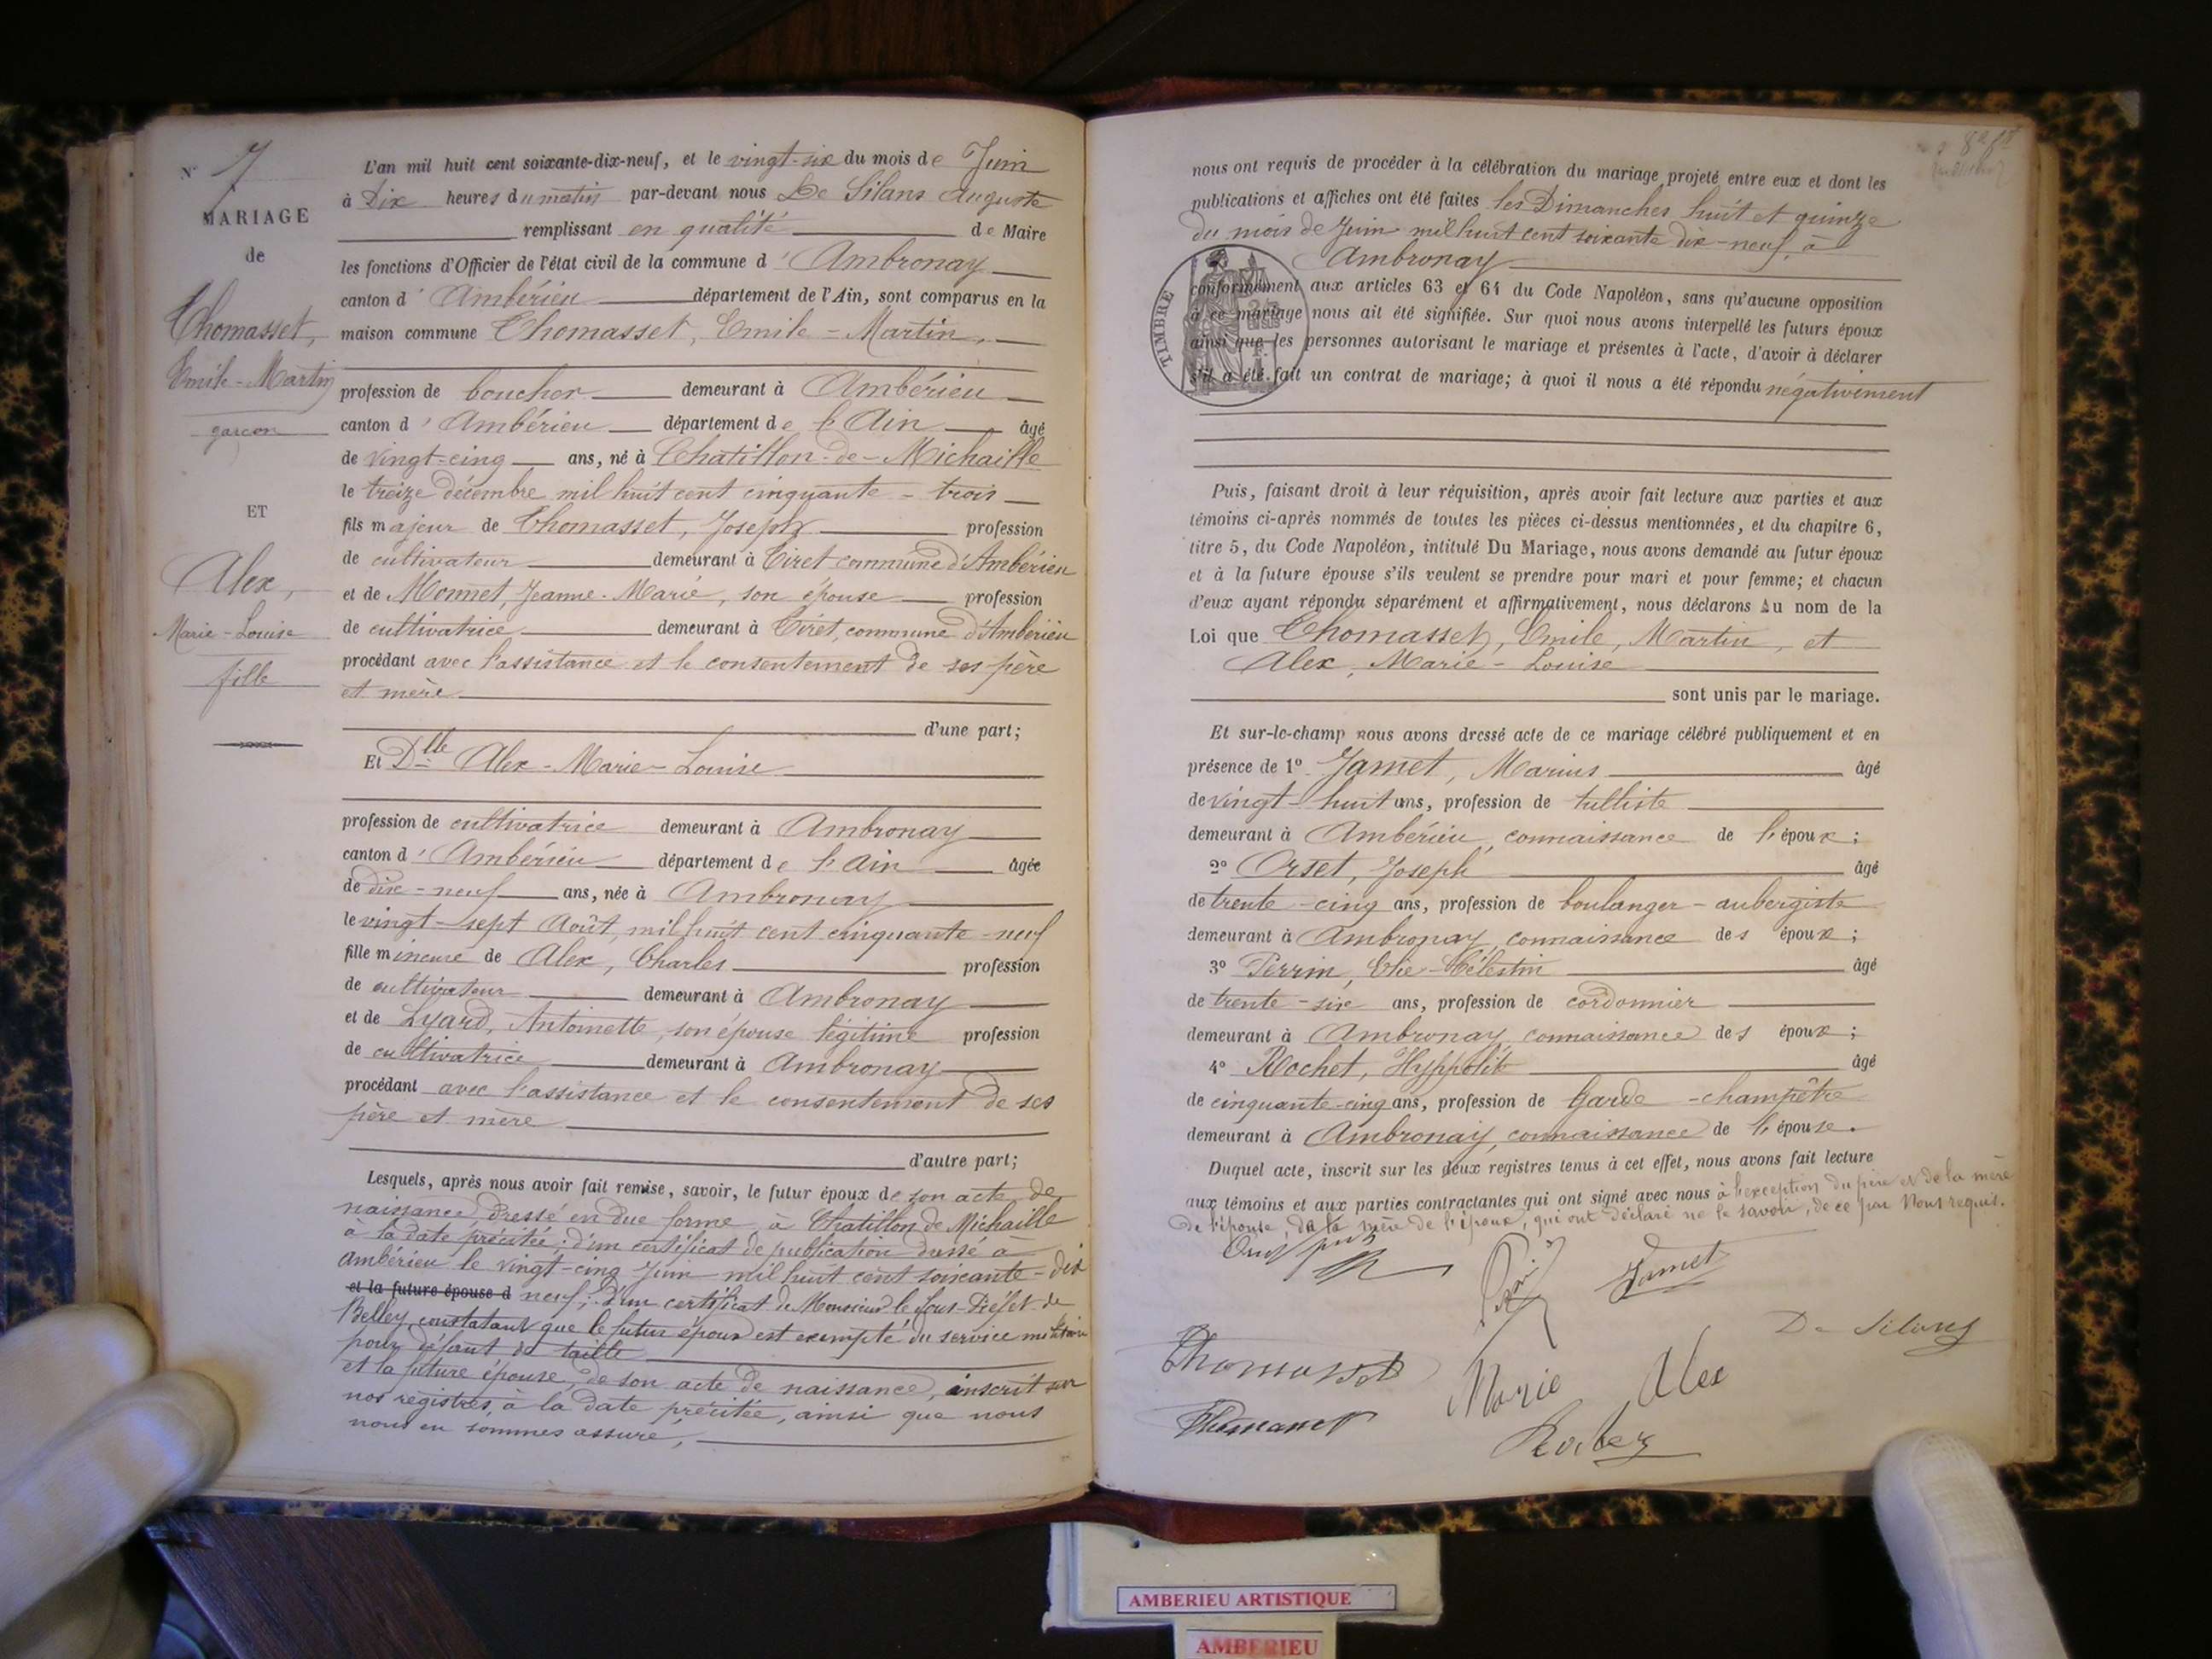 N° 7
MARIAGE
de
Thomasset,
Emile-Martin
garçon
ET
Alex,
Marie-Louise
fille
L'an mil huit cent soixante-dix-neuf, et le vingt-six du mois de Juin
à Dix heures du matin par-devant nous De Silans Auguste
remplissant en qualité de Maire
les fonctions d'Officier de l'état civil de la commune d'Ambronay
canton d'Ambérieu département de l'Ain, sont comparus en la
maison commune Thomasset, Emile-Martin,
profession de boucher demeurant à Ambérieu
canton d'Ambérieu département de l'Ain âgé
de vingt-cinq ans, né à Chatillon-de-Michaille
le treize décembre mil huit cent cinquante-trois
fils majeur de Thomasset, Joseph profession
de cultivateur demeurant à Tiret commune d'Ambérieu
et de Monnet, Jeanne-Marie, son épouse profession
de cultivatrice demeurant à Tiret, commune d'Ambérieu
procédant avec l'assistance et le consentement de ses père
et mère
d'une part;
Et Dlle Alex-Marie-Louise
profession de cultivatrice demeurant à Ambronay
canton d'Ambérieu département de l'Ain âgée
de dix-neuf ans, née à Ambronay
le vingt-sept Août, mil huit cent cinquante-neuf
fille mineure de Alex, Charles profession
de cultivateur demeurant à Ambronay
et de Lyard, Antoinette, son épouse légitime profession
de cultivatrice demeurant à Ambronay
procédant avec l'assistance et le consentement de ses
père et mère
d'autre part;
Lesquels, après nous avoir fait remise, savoir, le futur époux de son acte de
naissance dressé en due forme à Chatillon de Michaille
à la date précitée; d'un certificat de publication dressé à
Ambérieu le vingt-cinq Juin mil huit cent soixante-dix
et la future épouse d neuf; d'un certificat de Monsieur le Sous-Préfet de
Belley, constatant que le futur époux est exempté du service militaire
pour défaut de taille
et la future épouse, de son acte de naissance, inscrit sur
nos registres, à la date précitée, ainsi que nous
nous en sommes assuré,
nous ont requis de procéder à la célébration du mariage projeté entre eux et dont les
publications et affiches ont été faites les Dimanches huit et quinze
du mois de Juin mil huit cent soixante dix-neuf, à
Ambronay
TIMBRE
conformément aux articles 63 et 64 du Code Napoléon, sans qu'aucune opposition
à ce mariage nous ait été signifiée. Sur quoi nous avons interpellé les futurs époux
ainsi que les personnes autorisant le mariage et présentes à l'acte, d'avoir à déclarer
s'il a été fait un contrat de mariage; à quoi il nous a été répondu négativement
Puis, faisant droit à leur réquisition, après avoir fait lecture aux parties et aux
témoins ci-après nommés de toutes les pièces ci-dessus mentionnées, et du chapitre 6,
titre 5, du Code Napoléon, intitulé Du Mariage, nous avons demandé au futur époux
et à la future épouse s'ils veulent se prendre pour mari et pour femme; et chacun
d'eux ayant répondu séparément et affirmativement, nous déclarons Au nom de la
Loi que Thomasset, Emile, Martin, et
Alex, Marie-Louise
sont unis par le mariage.
Et sur-le-champ nous avons dressé acte de ce mariage célébré publiquement et en
présence de 1° Jamet, Marius âgé
de vingt-huit ans, profession de tulliste
demeurant à Ambérieu, connaissance de l'époux;
2° Orset, Joseph âgé
de trente-cinq ans, profession de boulanger-aubergiste
demeurant à Ambronay, connaissance des époux;
3° Perrin, Elie-Célestin âgé
de trente-six ans, profession de cordonnier
demeurant à Ambronay, connaissance des époux;
4° Rochet, Hyppolite âgé
de cinquante-cinq ans, profession de Garde-champêtre
demeurant à Ambronay, connaissance de l'épouse.
Duquel acte, inscrit sur les deux registres tenus à cet effet, nous avons fait lecture
aux témoins et aux parties contractantes qui ont signé avec nous à l'exception du père et de la mère
de l'épouse, de la mère de l'époux, qui ont déclaré ne le savoir, de ce par Nous requis.
Jamet
De Silans
Thomasset
Marie Alex
Thomasset
AMBERIEU ARTISTIQUE
AMBERIEU